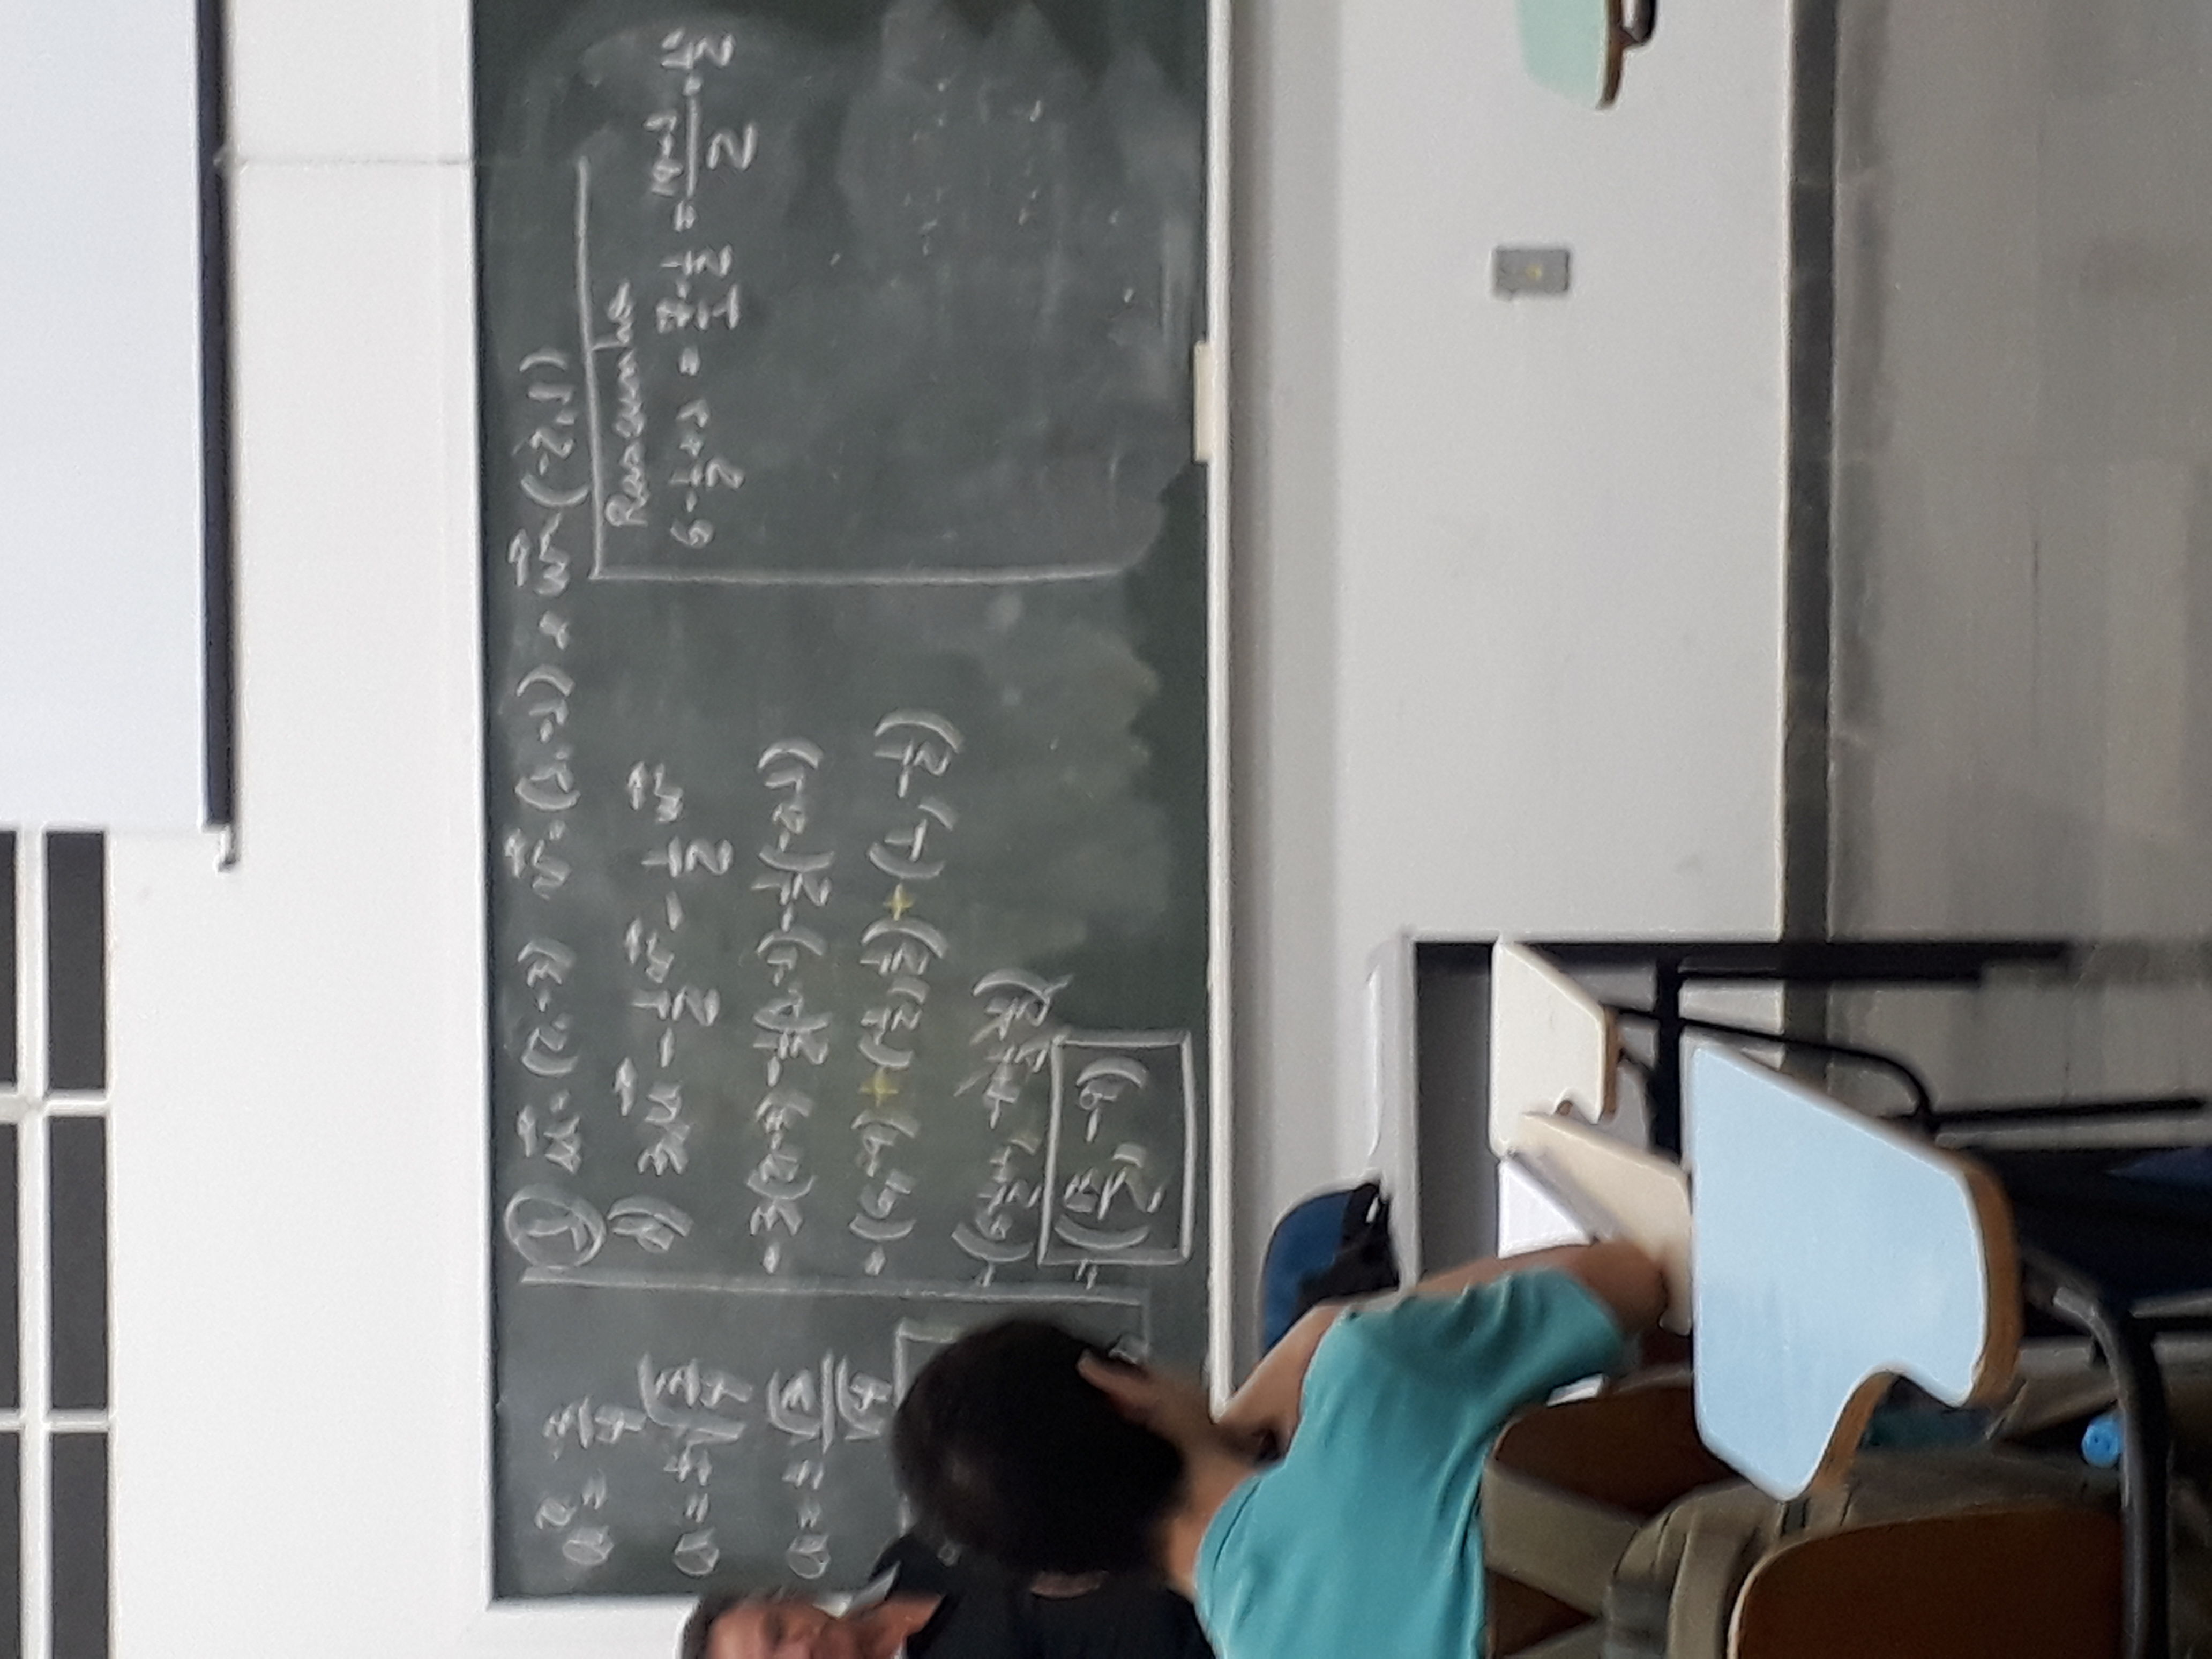 a² = 3/4
a = ±√(3/4)
a = ± √3/√4
① u⃗ = (2, -3) v⃗ = (1, -1) e w⃗ = (-2, 1)
d) 3u⃗ - 1/2 v⃗ - 1/2 w⃗
= 3(2, -3) - 1/2(1, -1) - 1/2(-2, 1)
= (6, -9) + (-1/2, 1/2) + (1, -1/2)
= (6 - 1/2 + 1, -9 + 1/2 - 1/2)
= (13/2, -9)
Rascunho
6 - 1/2 + 1 = 7/1 - 1/2 = (14 - 1)/2 = 13/2